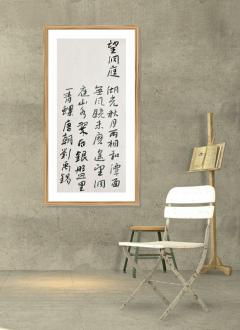 望洞庭
湖光秋月兩相和潭面
無風鏡未磨遙望洞
庭山水翠白銀盤里
一青螺唐朝劉禹錫